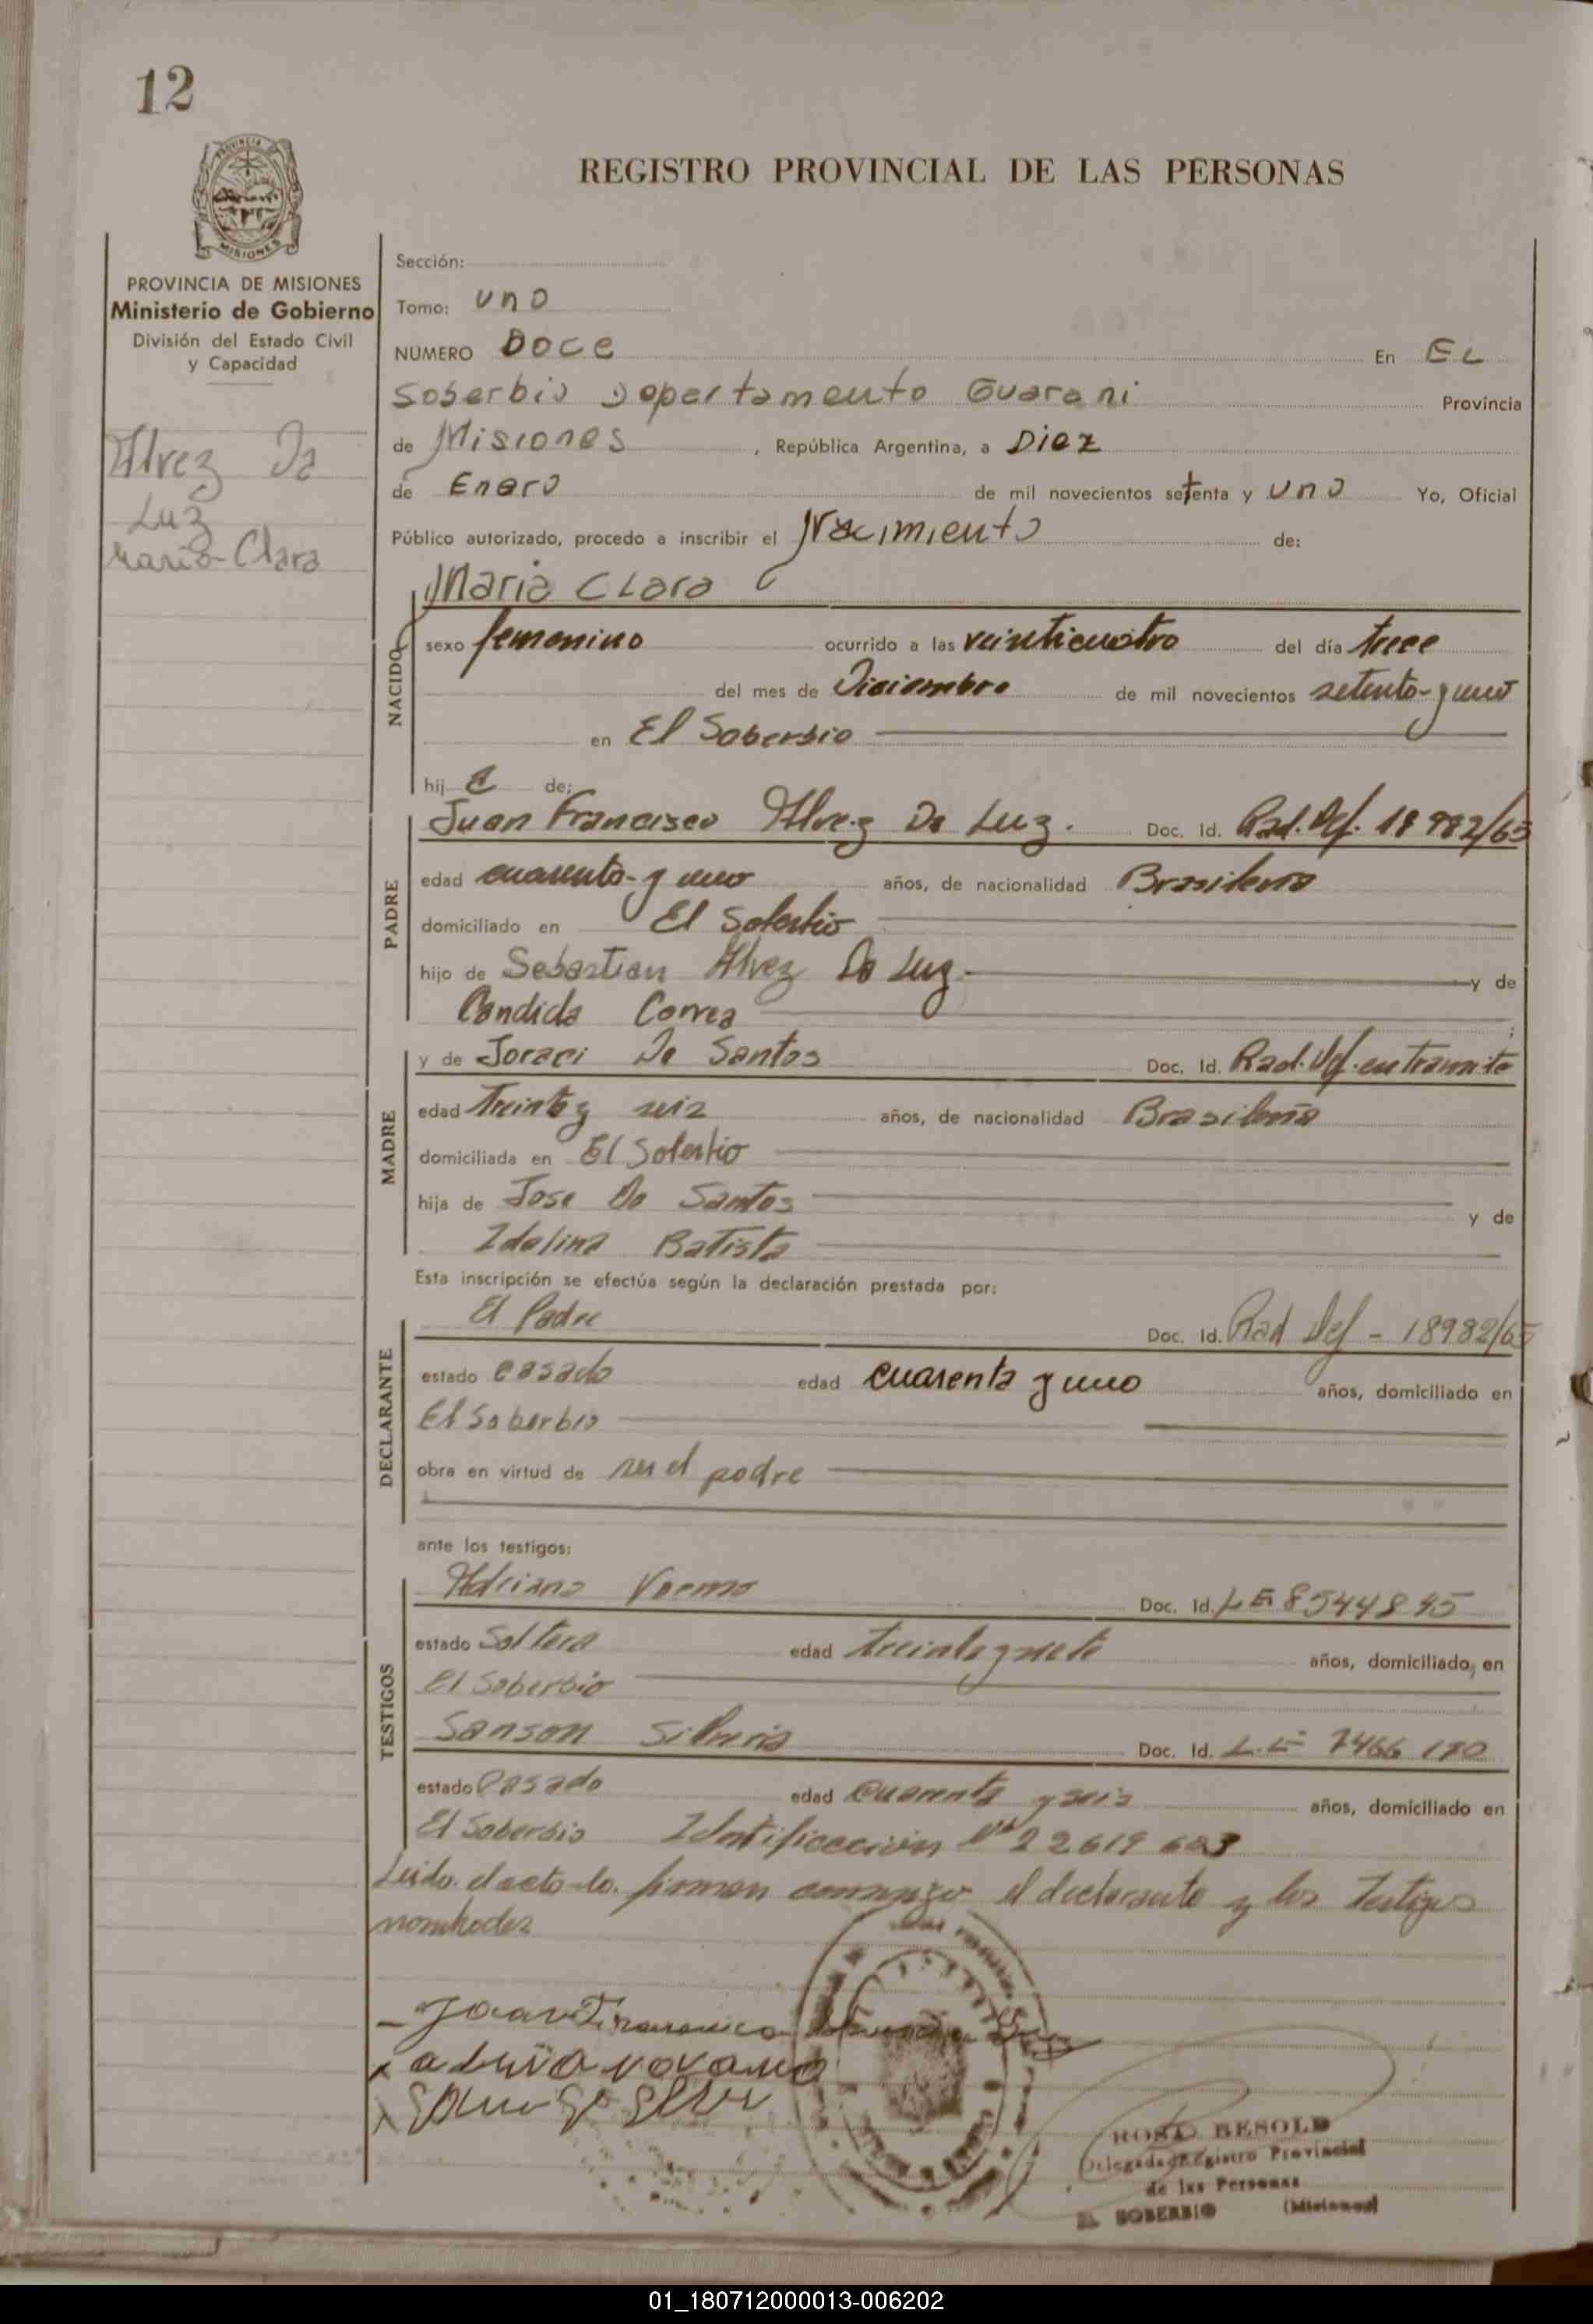 12
PROVINCIA
MISIONES
REGISTRO PROVINCIAL DE LAS PERSONAS
PROVINCIA DE MISIONES
Ministerio de Gobierno
División del Estado Civil
y Capacidad
Alvez Da
Luz
Maria-Clara
Sección:
Tomo: uno
NUMERO Doce En EL
Soberbio Departamento Guarani Provincia
de Misiones, República Argentina, a Diez
de Enero de mil novecientos setenta y uno Yo, Oficial
Público autorizado, procedo a inscribir el Nacimiento de:
Maria Clara
NACIDO
sexo femenino ocurrido a las veinticuatro del día trece
del mes de Diciembre de mil novecientos setenta y uno
en El Soberbio
hij a de:
PADRE
Juan Francisco Alvez Da Luz. Doc. Id. Rad. Def. 18982/65
edad cuarenta y uno años, de nacionalidad Brasilena
domiciliado en El Soberbio
hijo de Sebastian Alvez Da Luz y de
Candida Correa ;
MADRE
y de Joraci Da Santos Doc. Id. Rad. Def. en tramite
edad Treinta y seis años, de nacionalidad Brasileña
domiciliada en El Soberbio
hija de Jose Da Santos y de
Idalina Batista
Esta inscripción se efectúa según la declaración prestada por:
DECLARANTE
El Padre Doc. Id. Rad Def - 18982/65
estado casado edad cuarenta y uno años, domiciliado en
El Soberbio
obra en virtud de ser el padre
ante los testigos:
TESTIGOS
Adriano Doc. Id. L E 8544845
estado Soltero edad treinta y siete años, domiciliado, en
El Soberbio
Sanson Silveria Doc. Id. L.E 7466170
estado Casado edad cuarenta y seis años, domiciliado en
El Soberbio Identificacion Nº 22619683
Leido el acto lo firman conmigo el declarante y los Testigos
nombrados
ROSA BESOLD
Delegada Registro Provincial
de las Personas
EL SOBERBIO (Misiones)
01_180712000013-006202